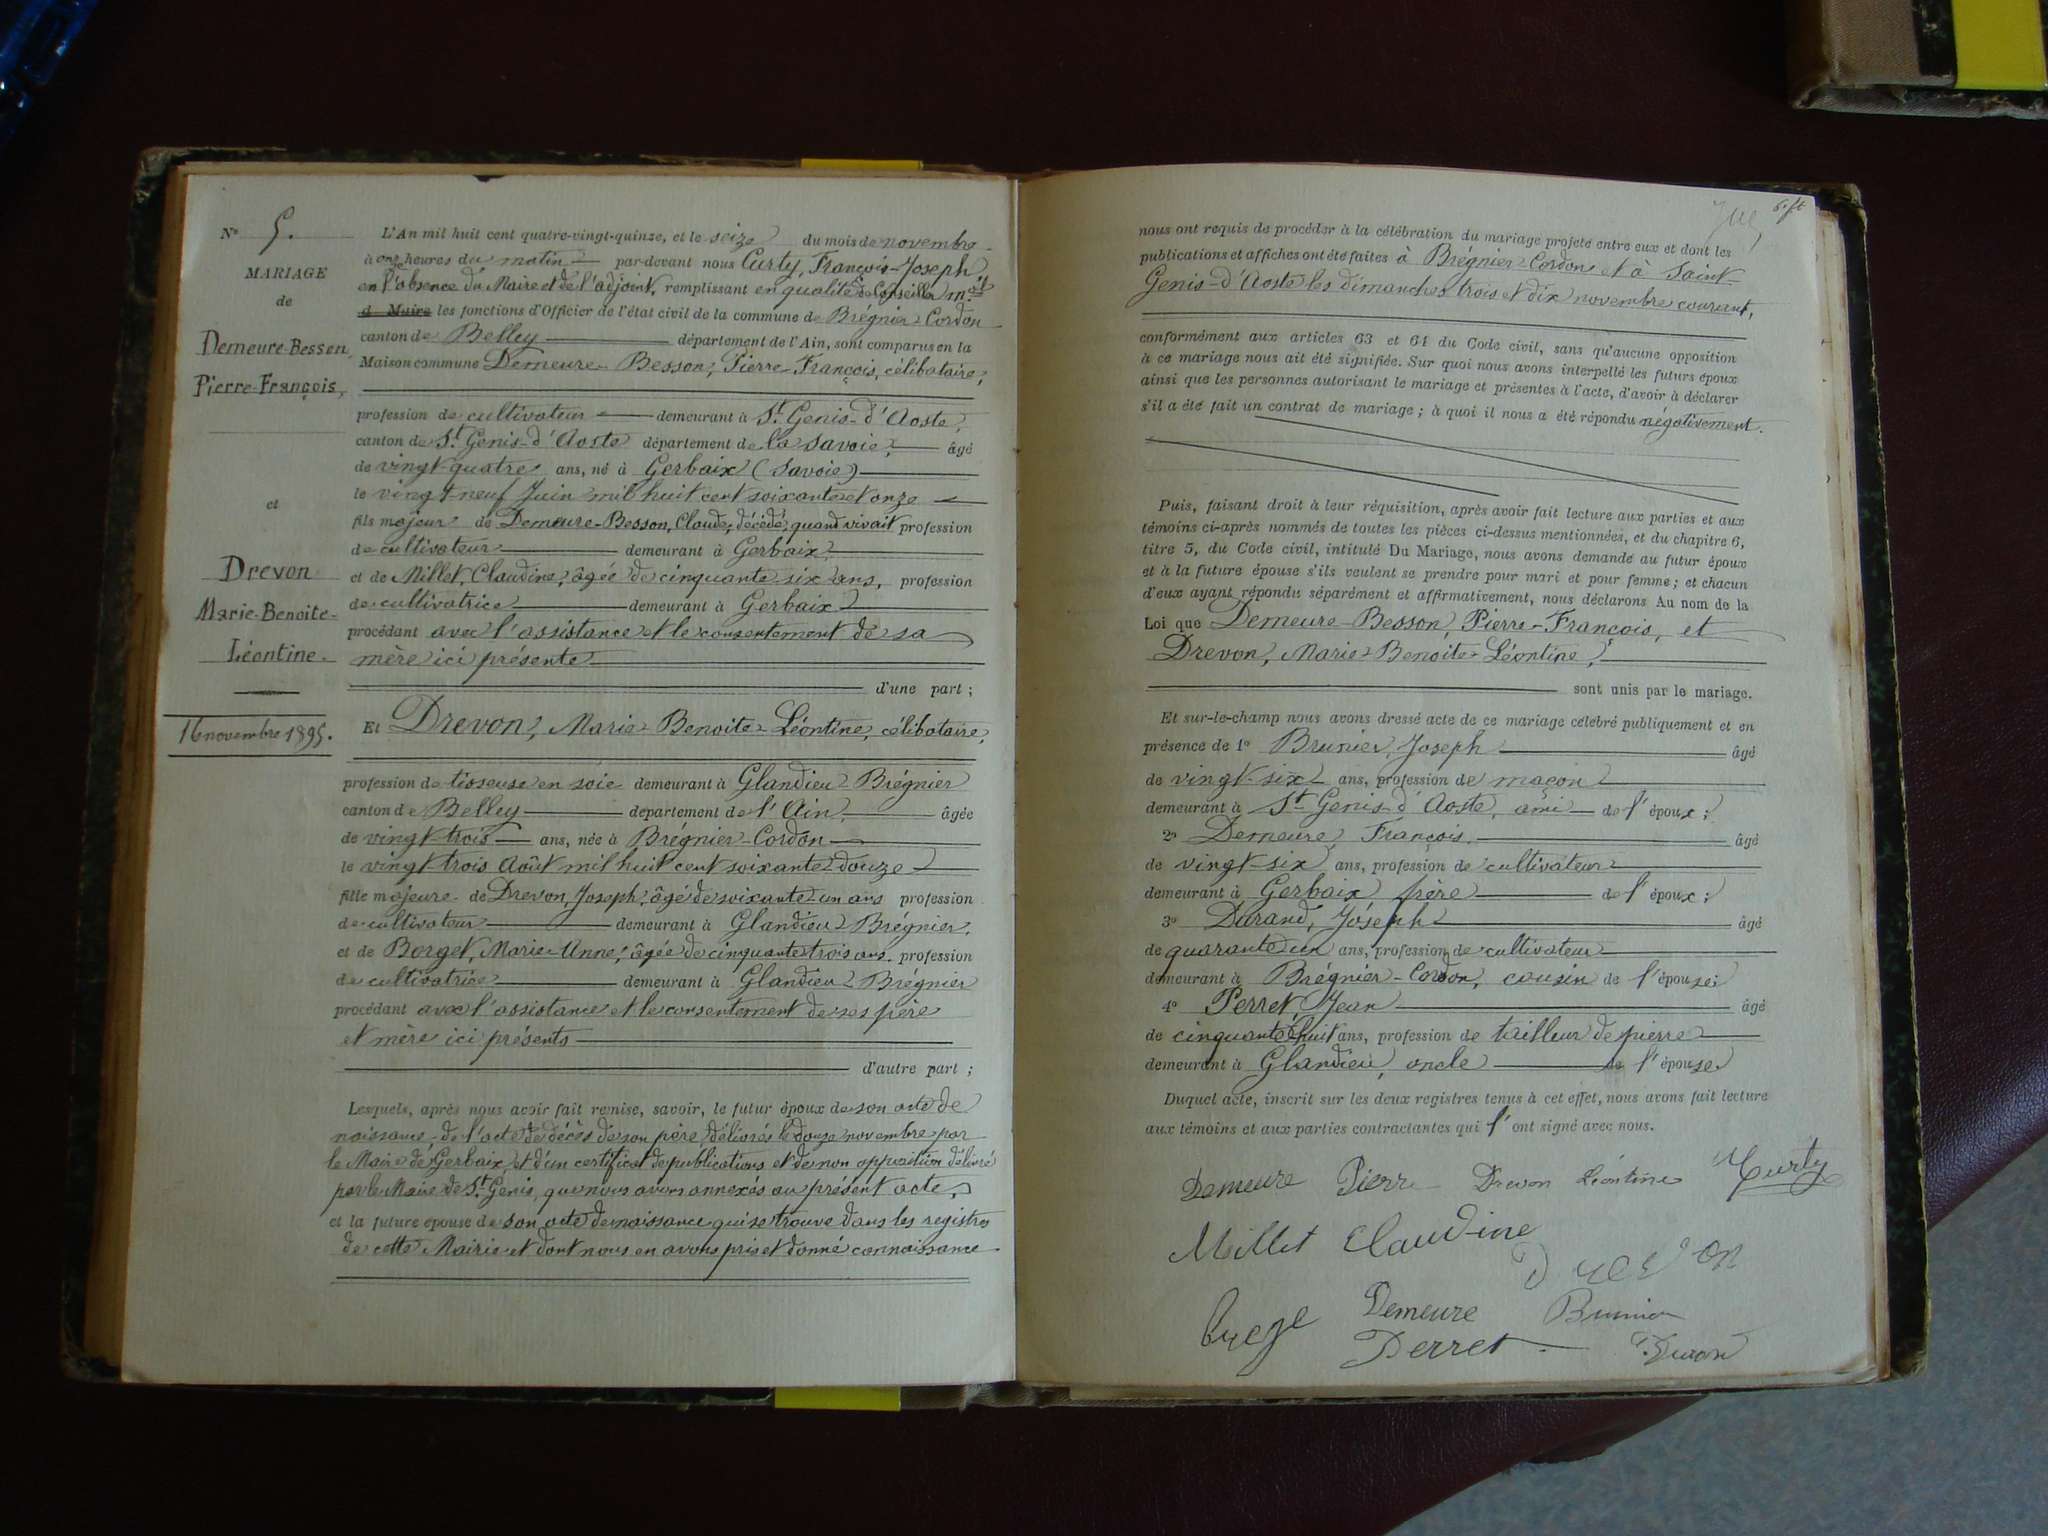 N° 5.
MARIAGE
de
Demeure-Besson,
Pierre-François,
et
Drevon
Marie-Benoite-
Léontine.
16 novembre 1895.
L'An mil huit cent quatre-vingt-quinze, et le seize du mois de novembre
à onze heures du matin par-devant nous Curty, François-Joseph
en l'absence du Maire et de l'adjoint, remplissant en qualité de Conseiller mpal
d Maire les fonctions d'Officier de l'état civil de la commune de Brégnier-Cordon
canton de Belley département de l'Ain, sont comparus en la
Maison commune Demeure-Besson, Pierre-François, célibataire,
profession de cultivateur demeurant à St Genis-d'Aoste,
canton de St Genis-d'Aoste département de la Savoie, âgé
de vingt-quatre ans, né à Gerbaix (Savoie)
le vingt-neuf Juin mil huit cent soixante et onze
fils majeur de Demeure-Besson, Claude, décédé, quand vivait profession
de cultivateur demeurant à Gerbaix
et de Millet, Claudine, âgée de cinquante-six ans, profession
de cultivatrice demeurant à Gerbaix
procédant avec l'assistance et le consentement de sa
mère ici présente
d'une part ;
Et Drevon, Marie-Benoite-Léontine, célibataire,
profession de tisseuse en soie demeurant à Glandieu-Brégnier
canton de Belley département de l'Ain, âgée
de vingt-trois ans, née à Brégnier-Cordon
le vingt-trois Août mil huit cent soixante-douze
fille majeure de Drevon, Joseph, âgé de soixante-un ans profession
de cultivateur demeurant à Glandieu-Brégnier,
et de Borget, Marie-Anne, âgée de cinquante trois ans. profession
de cultivatrice demeurant à Glandieu-Brégnier
procédant avec l'assistance et le consentement de ses père
et mère ici présents
d'autre part ;
Lesquels, après nous avoir fait remise, savoir, le futur époux de son acte de
naissance, de l'acte de décès de son père, délivrés le douze novembre par
le Maire de Gerbaix, et d'un certificat de publications et de non opposition délivré
par le Maire de St Genis, que nous avons annexés au présent acte,
et la future épouse de son acte de naissance qui se trouve dans les registres
de cette Mairie et dont nous en avons pris et donné connaissance
nous ont requis de procéder à la célébration du mariage projeté entre eux et dont les
publications et affiches ont été faites à Brégnier-Cordon et à Saint-
Genis-d'Aoste les dimanches trois et dix novembre courant,
conformément aux articles 63 et 64 du Code civil, sans qu'aucune opposition
à ce mariage nous ait été signifiée. Sur quoi nous avons interpellé les futurs époux
ainsi que les personnes autorisant le mariage et présentes à l'acte, d'avoir à déclarer
s'il a été fait un contrat de mariage ; à quoi il nous a été répondu négativement.
Puis, faisant droit à leur réquisition, après avoir fait lecture aux parties et aux
témoins ci-après nommés de toutes les pièces ci-dessus mentionnées, et du chapitre 6,
titre 5, du Code civil, intitulé Du Mariage, nous avons demandé au futur époux
et à la future épouse s'ils veulent se prendre pour mari et pour femme ; et chacun
d'eux ayant répondu séparément et affirmativement, nous déclarons Au nom de la
Loi que Demeure-Besson, Pierre-François, et
Drevon, Marie-Benoite-Léontine,
sont unis par le mariage.
Et sur-le-champ nous avons dressé acte de ce mariage célébré publiquement et en
présence de 1° Brunier, Joseph âgé
de vingt-six ans, profession de maçon
demeurant à St Genis-d'Aoste, ami de l'époux ;
2° Demeure, François. âgé
de vingt-six ans, profession de cultivateur
demeurant à Gerbaix, frère de l'époux ;
3° Durand, Joseph âgé
de quarante un ans, profession de cultivateur
demeurant à Brégnier-Cordon, cousin de l'épouse ;
4° Perret, Jean âgé
de cinquante huit ans, profession de tailleur de pierre
demeurant à Glandieu, oncle de l'épouse.
Duquel acte, inscrit sur les deux registres tenus à cet effet, nous avons fait lecture
aux témoins et aux parties contractantes qui l'ont signé avec nous.
Demeure Pierre Drevon Léontine Curty
Millet Claudine
Drevon
Demeure Brunier
Perret